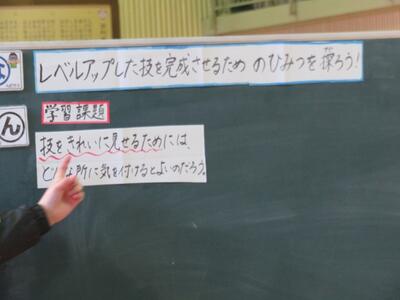 レベルアップした技を完成させるため のひみつを探ろう!
学習課題
ん
技をきれいに見せるためには、
どんな所に気を付けるとよいのだろう。